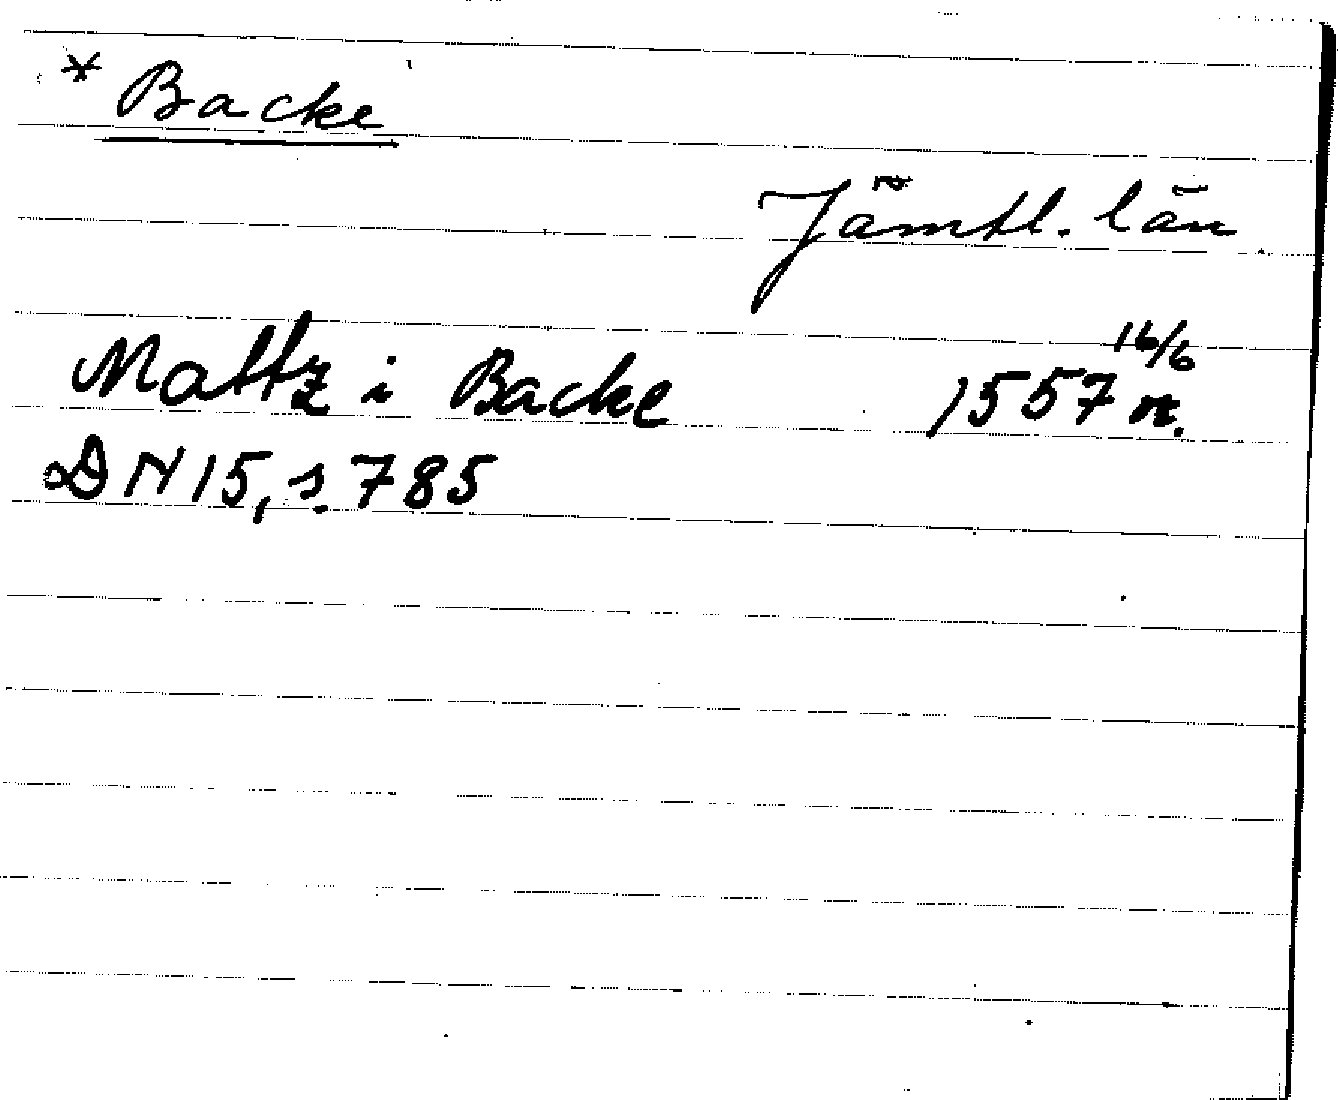 * Backe
Jämtl. län
Mattz i Backe 1557 16/6 n.
DN 15, s. 785